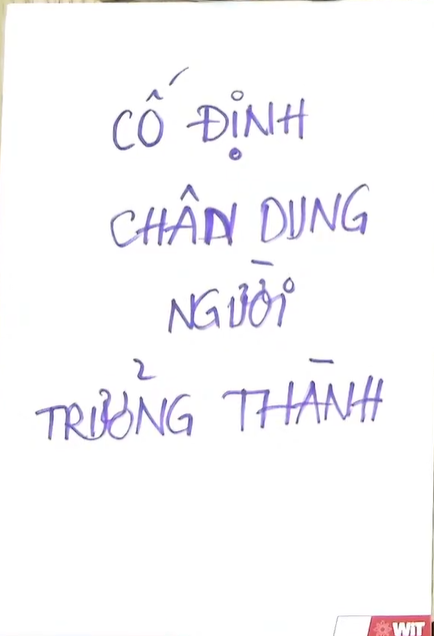 CỐ ĐỊNH
CHÂN DUNG
NGƯỜI
TRƯỞNG THÀNH
WIT